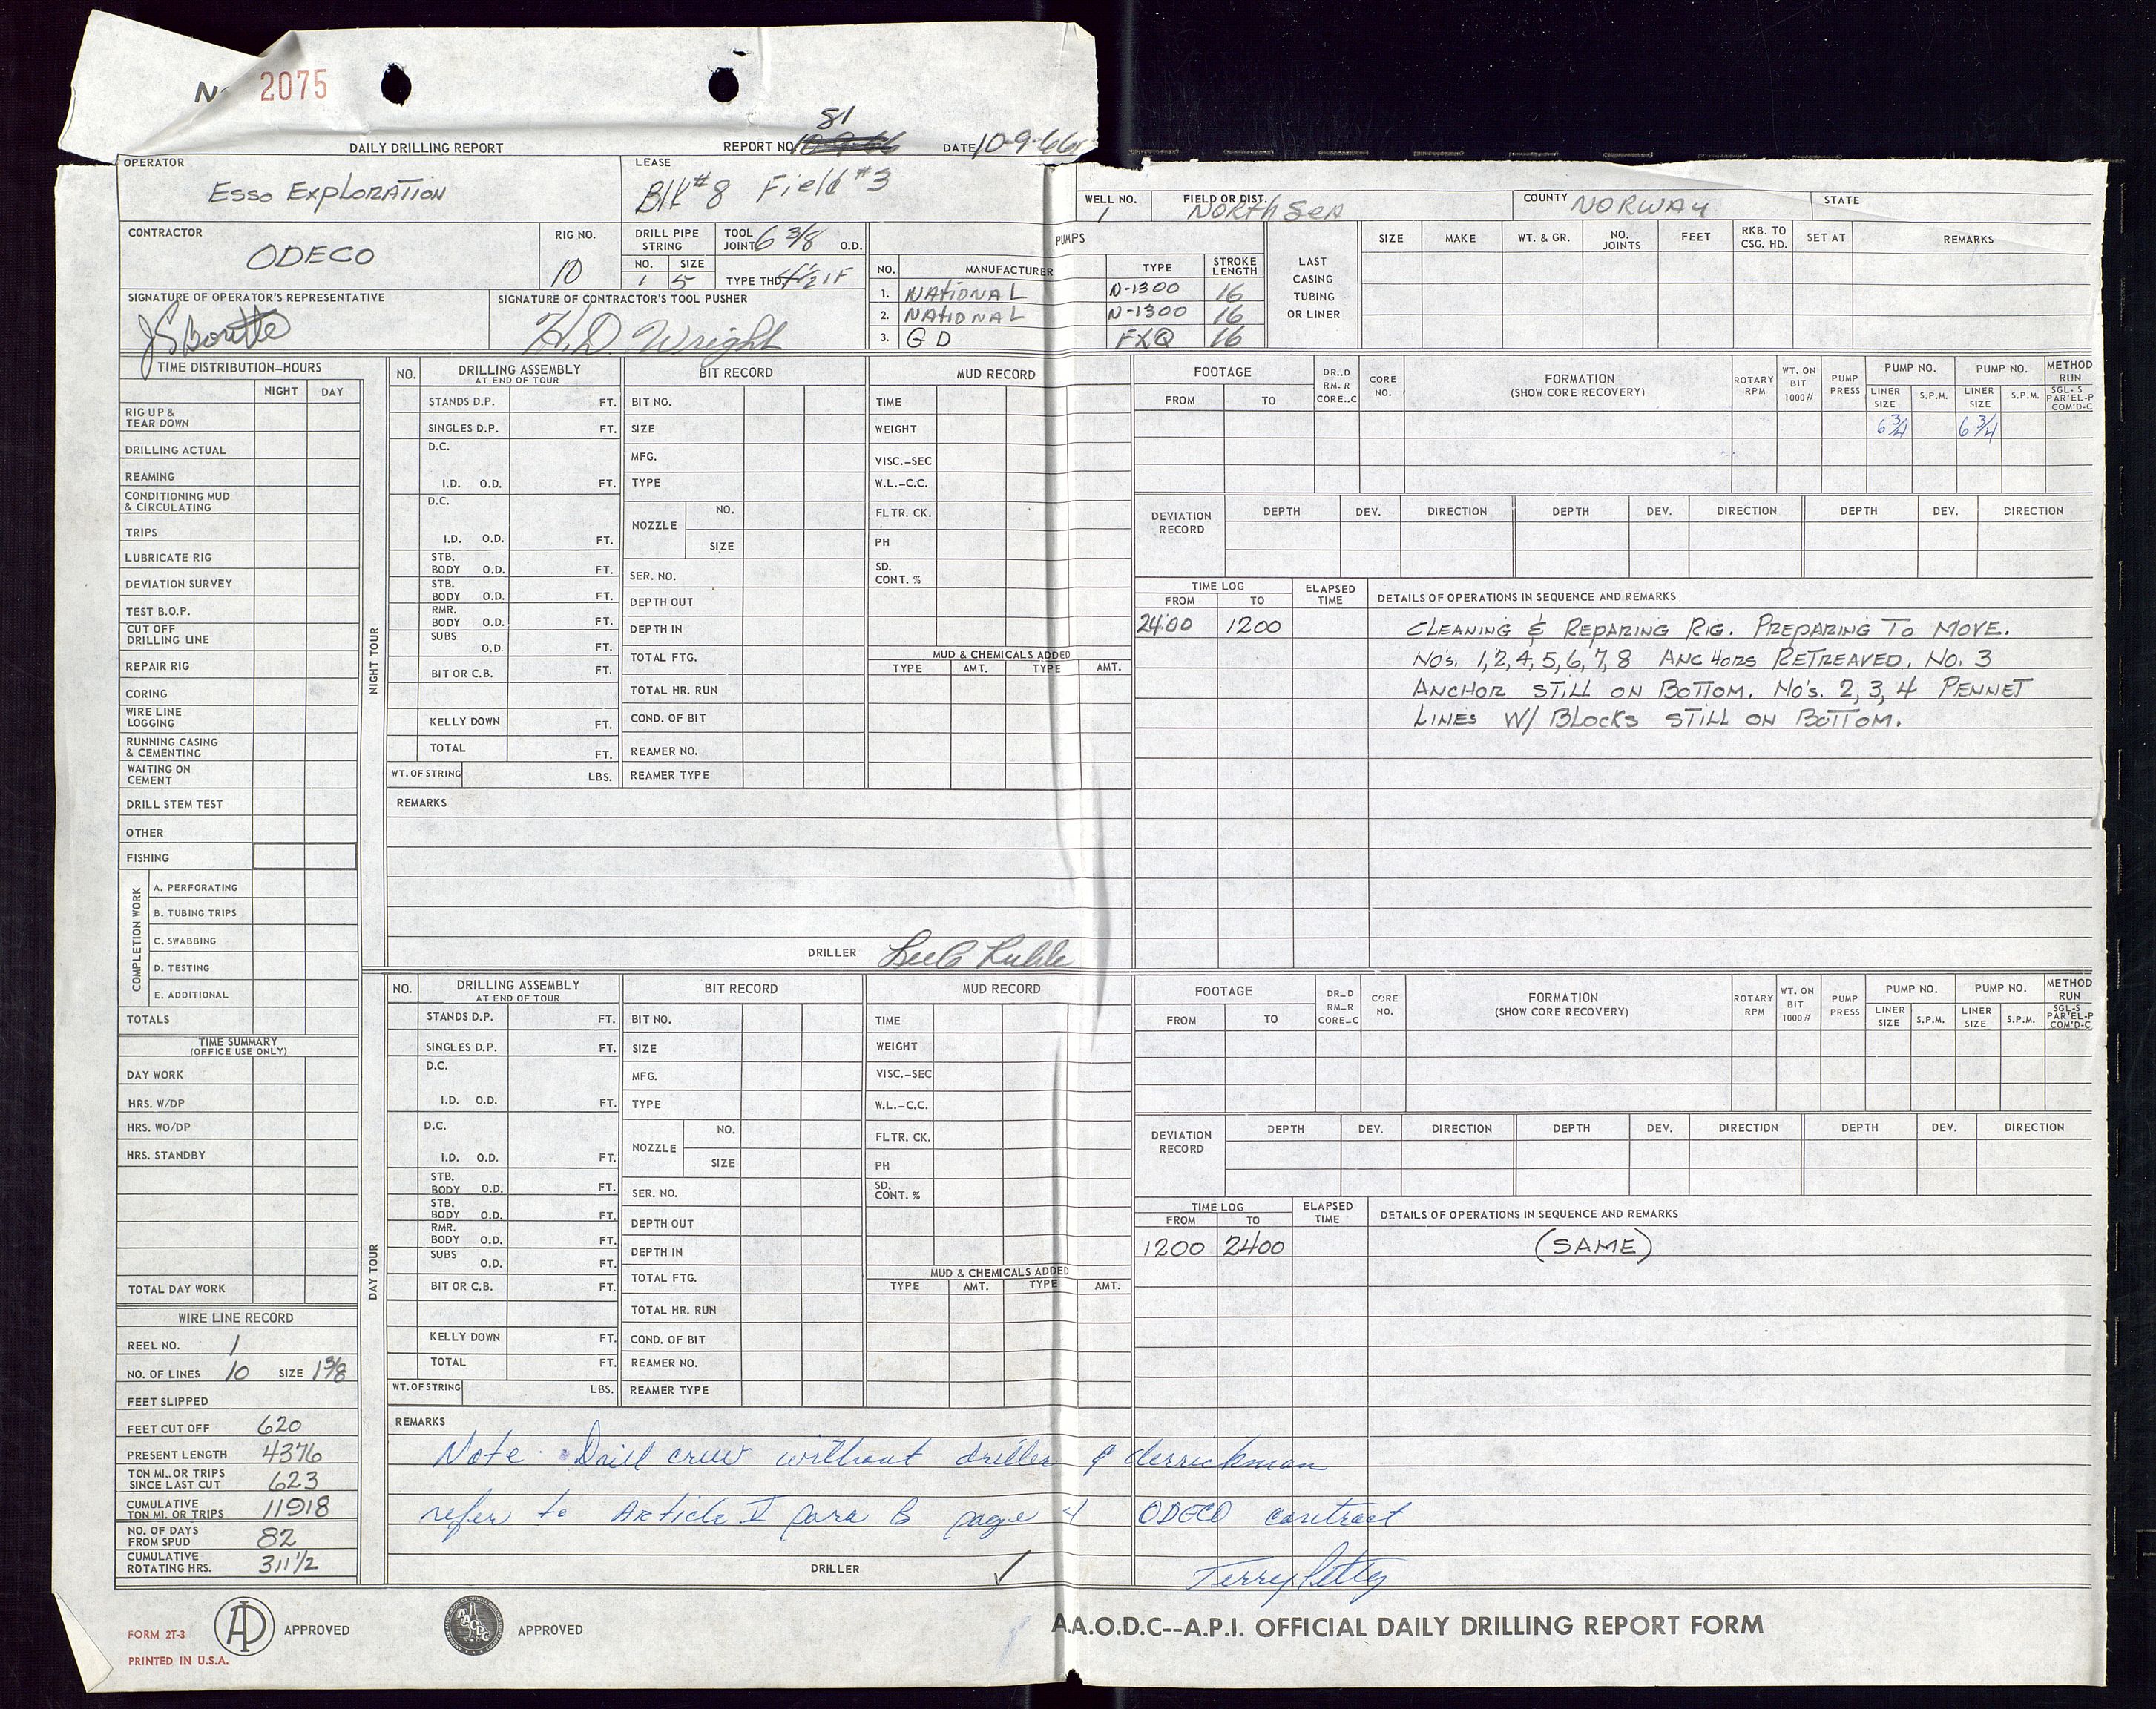 No 2075
81
DAILY DRILLING REPORT REPORT NO. 10-9-66 DATE 10-9-66
OPERATOR Esso Exploration
LEASE Blk #8 Field #3
WELL NO. 1
FIELD OR DIST. North Sea
COUNTY NORWAY
STATE
CONTRACTOR ODECO
RIG NO. 10
DRILL PIPE STRING
NO. 1 SIZE 5
TOOL JOINT 6 3/8 O.D.
TYPE THD. 4 1/2 IF
PUMPS
NO. MANUFACTURER TYPE STROKE LENGTH
1. NATIONAL N-1300 16
2. NATIONAL N-1300 16
3. G D FXQ 16
LAST CASING TUBING OR LINER
SIZE MAKE WT. & GR. NO. JOINTS FEET RKB. TO CSG. HD. SET AT REMARKS
SIGNATURE OF OPERATOR'S REPRESENTATIVE
SIGNATURE OF CONTRACTOR'S TOOL PUSHER
H.D. Wright
TIME DISTRIBUTION–HOURS
NIGHT DAY
RIG UP & TEAR DOWN
DRILLING ACTUAL
REAMING
CONDITIONING MUD & CIRCULATING
TRIPS
LUBRICATE RIG
DEVIATION SURVEY
TEST B.O.P.
CUT OFF DRILLING LINE
REPAIR RIG
CORING
WIRE LINE LOGGING
RUNNING CASING & CEMENTING
WAITING ON CEMENT
DRILL STEM TEST
OTHER
FISHING
COMPLETION WORK
A. PERFORATING
B. TUBING TRIPS
C. SWABBING
D. TESTING
E. ADDITIONAL
TOTALS
TIME SUMMARY
(OFFICE USE ONLY)
DAY WORK
HRS. W/DP
HRS. WO/DP
HRS. STANDBY
TOTAL DAY WORK
WIRE LINE RECORD
REEL NO. 1
NO. OF LINES 10 SIZE 1 3/8
FEET SLIPPED
FEET CUT OFF 620
PRESENT LENGTH 4376
TON MI. OR TRIPS SINCE LAST CUT 623
CUMULATIVE TON MI. OR TRIPS 11918
NO. OF DAYS FROM SPUD 82
CUMULATIVE ROTATING HRS. 311 1/2
NIGHT TOUR
NO. DRILLING ASSEMBLY AT END OF TOUR
STANDS D.P. FT.
SINGLES D.P. FT.
D.C.
I.D. O.D. FT.
D.C.
I.D. O.D. FT.
STB. BODY O.D. FT.
STB. BODY O.D. FT.
RMR. BODY O.D. FT.
SUBS O.D. FT.
BIT OR C.B. FT.
KELLY DOWN FT.
TOTAL FT.
WT. OF STRING LBS.
BIT RECORD
BIT NO.
SIZE
MFG.
TYPE
NOZZLE NO.
SIZE
SER. NO.
DEPTH OUT
DEPTH IN
TOTAL FTG.
TOTAL HR. RUN
COND. OF BIT
REAMER NO.
REAMER TYPE
MUD RECORD
TIME
WEIGHT
VISC.–SEC
W.L.–C.C.
FLTR. CK.
PH
SD. CONT. %
MUD & CHEMICALS ADDED
TYPE AMT. TYPE AMT.
FOOTAGE
FROM TO
DR..D RM. R CORE..C
CORE NO.
FORMATION (SHOW CORE RECOVERY)
ROTARY RPM
WT. ON BIT 1000#
PUMP PRESS
PUMP NO. LINER SIZE S.P.M.
PUMP NO. LINER SIZE S.P.M.
METHOD RUN SGL-S PAR'EL-P COM'D-C
6 3/4 6 3/4
DEVIATION RECORD
DEPTH DEV. DIRECTION DEPTH DEV. DIRECTION DEPTH DEV. DIRECTION
TIME LOG ELAPSED TIME DETAILS OF OPERATIONS IN SEQUENCE AND REMARKS
FROM TO
2400 1200 CLEANING & REPARING RIG. PREPARING TO MOVE.
NO'S. 1,2,4,5,6,7,8 ANCHORS RETREAVED. NO. 3
ANCHOR STILL ON BOTTOM. NO'S. 2,3,4 PENNET
LINES W/ BLOCKS STILL ON BOTTOM.
REMARKS
DRILLER
DAY TOUR
NO. DRILLING ASSEMBLY AT END OF TOUR
STANDS D.P. FT.
SINGLES D.P. FT.
D.C.
I.D. O.D. FT.
D.C.
I.D. O.D. FT.
STB. BODY O.D. FT.
STB. BODY O.D. FT.
RMR. BODY O.D. FT.
SUBS O.D. FT.
BIT OR C.B. FT.
KELLY DOWN FT.
TOTAL FT.
WT. OF STRING LBS.
BIT RECORD
BIT NO.
SIZE
MFG.
TYPE
NOZZLE NO.
SIZE
SER. NO.
DEPTH OUT
DEPTH IN
TOTAL FTG.
TOTAL HR. RUN
COND. OF BIT
REAMER NO.
REAMER TYPE
MUD RECORD
TIME
WEIGHT
VISC.–SEC
W.L.–C.C.
FLTR. CK.
PH
SD. CONT. %
MUD & CHEMICALS ADDED
TYPE AMT. TYPE AMT.
FOOTAGE
FROM TO
DR_D RM_R CORE_C
CORE NO.
FORMATION (SHOW CORE RECOVERY)
ROTARY RPM
WT. ON BIT 1000#
PUMP PRESS
PUMP NO. LINER SIZE S.P.M.
PUMP NO. LINER SIZE S.P.M.
METHOD RUN SGL-S PAR'EL-P COM'D-C
DEVIATION RECORD
DEPTH DEV. DIRECTION DEPTH DEV. DIRECTION DEPTH DEV. DIRECTION
TIME LOG ELAPSED TIME DETAILS OF OPERATIONS IN SEQUENCE AND REMARKS
FROM TO
1200 2400 (SAME)
REMARKS
Note Drill crew without driller & derrickman
refer to Article V para B page 4 ODECO contract
DRILLER ✓
FORM 2T-3
PRINTED IN U.S.A.
APPROVED
APPROVED
A.A.O.D.C--A.P.I. OFFICIAL DAILY DRILLING REPORT FORM